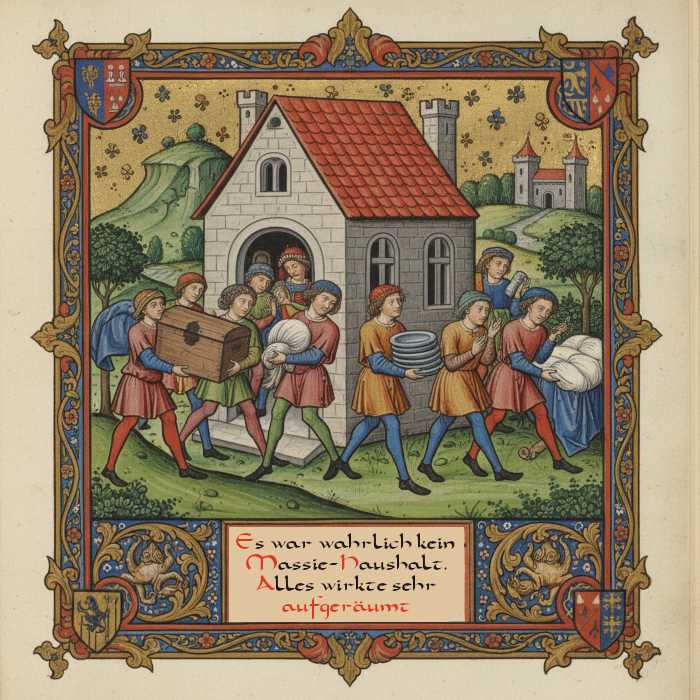 Es war wahrlich kein
Massie-Haushalt.
Alles wirkte sehr
aufgeräumt